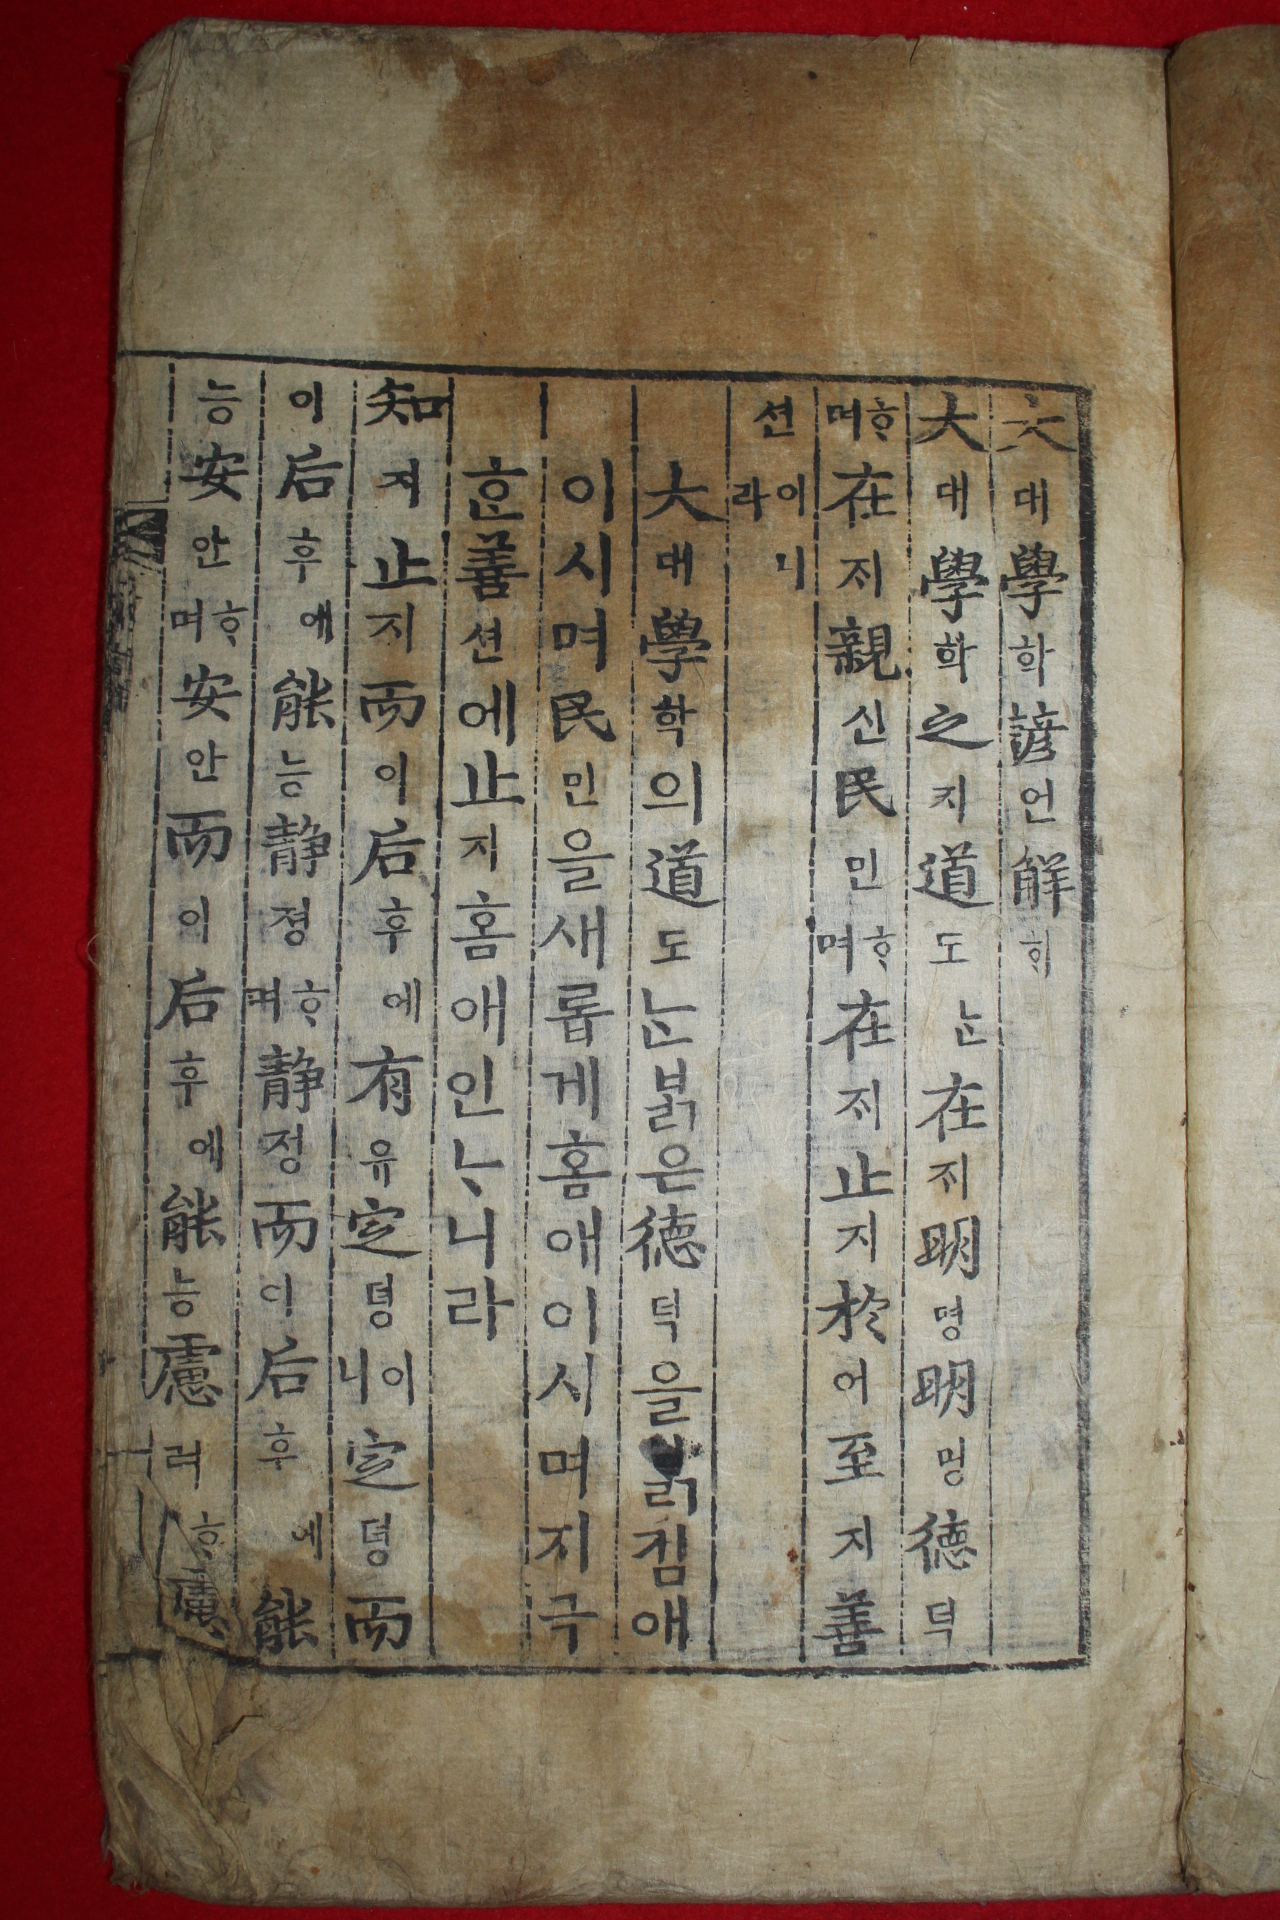 大대學학諺언解ᄒᆡ
大대學학之지道도ᄂᆞᆫ在ᄌᆡ明명明명德덕
ᄒᆞ며在ᄌᆡ親신民민ᄒᆞ며在ᄌᆡ止지於어至지善
션이니라
大대學학의道도ᄂᆞᆫᄇᆞᆰ은德덕을ᄇᆞᆰ킴애
이시며民민을새롭게홈애이시며지극
ᄒᆞᆫ善션에止지홈애인ᄂᆞ니라
知지止지而이后후에有유定뎡이니定뎡而
이后후에能능靜졍ᄒᆞ며靜졍而이后후에能
능安안ᄒᆞ며安안而이后후에能능慮려ᄒᆞ慮